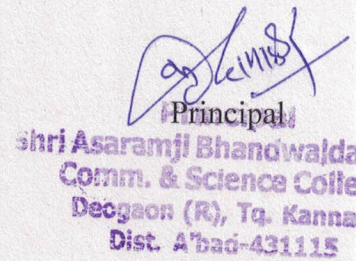 Principal
Shri Asaramji Bhandwalda
Comm. & Science Colle
Deogaon (R), Tq. Kanna
Dist. A'bad-431115